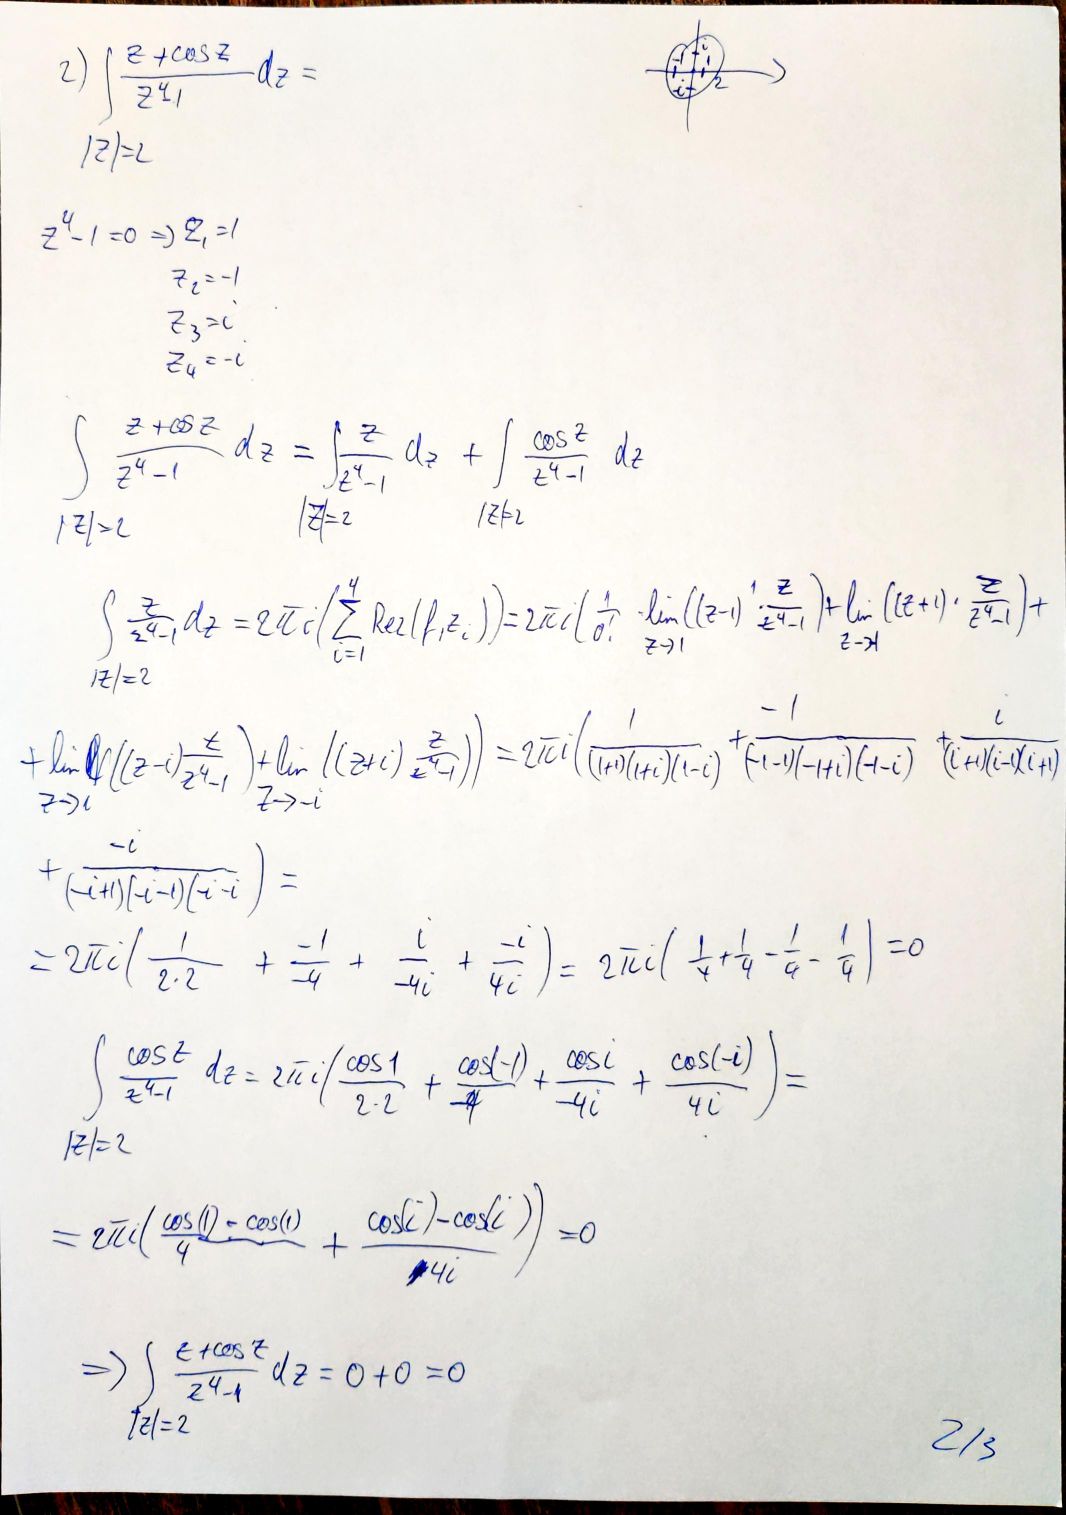 2) ∫ (z+cos z)/(z⁴-1) dz =
|z|=2
-1 i 1 -i 2
z⁴-1=0 => z₁=1
z₂=-1
z₃=i
z₄=-i
∫ (z+cos z)/(z⁴-1) dz = ∫ z/(z⁴-1) dz + ∫ cos z/(z⁴-1) dz
|z|=2 |z|=2 |z|=2
∫ z/(z⁴-1) dz = 2πi(∑ Rez(f,zᵢ)) = 2πi(1/0! · lim((z-1)¹ · z/(z⁴-1)) + lim((z+1) · z/(z⁴-1)) +
|z|=2 4 i=1 z→1 z→-1
+ lim((z-i) z/(z⁴-1)) + lim((z+i) z/(z⁴-1))) = 2πi(1/((1+1)(1+i)(1-i)) + -1/((-1-1)(-1+i)(-1-i)) + i/((i+1)(i-1)(i+1)
z→i z→-i
+ -i/((-i+1)(-i-1)(-i-i) ) =
= 2πi(1/(2·2) + -1/-4 + i/-4i + -i/4i) = 2πi(1/4+1/4-1/4-1/4) =0
∫ cos z/(z⁴-1) dz = 2πi(cos1/(2·2) + cos(-1)/-4 + cos i/-4i + cos(-i)/4i) =
|z|=2
= 2πi((cos(1)-cos(1))/4 + (cos(i)-cos(i))/4i) =0
=> ∫ (z+cos z)/(z⁴-1) dz = 0+0 =0
|z|=2
2/3